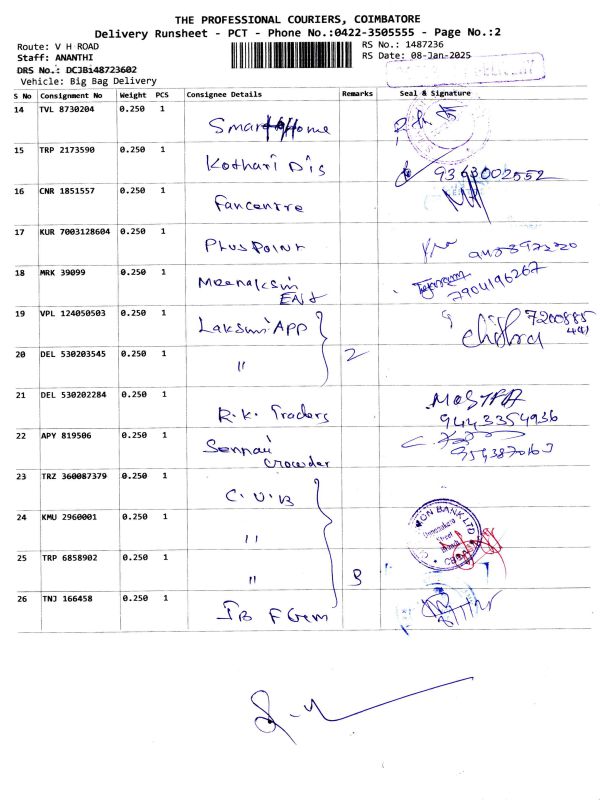 THE PROFESSIONAL COURIERS, COIMBATORE
Delivery Runsheet - PCT - Phone No.:0422-3505555 - Page No.:2
Route: V H ROAD
RS No.: 1487236
Staff: ANANTHI
RS Date: 08-Jan-2025
DRS No.: DCJBi48723602
Vehicle: Big Bag Delivery
S No Consignment No Weight PCS Consignee Details Remarks Seal & Signature
14 TVL 8730204 0.250 1 Smart Home
15 TRP 2173590 0.250 1 Kothari Dis 9363002552
16 CNR 1851557 0.250 1 Fancentre
17 KUR 7003128604 0.250 1 Plus Point
18 MRK 39099 0.250 1 Meenakshi 7904196267
19 VPL 124050503 0.250 1 Laksmi APP 7200885
20 DEL 530203545 0.250 1 " 2
21 DEL 530202284 0.250 1 R.K. Traders 9443354936
22 APY 819506 0.250 1
23 TRZ 360087379 0.250 1 C.U.B
24 KMU 2960001 0.250 1 "
25 TRP 6858902 0.250 1 " 3
26 TNJ 166458 0.250 1